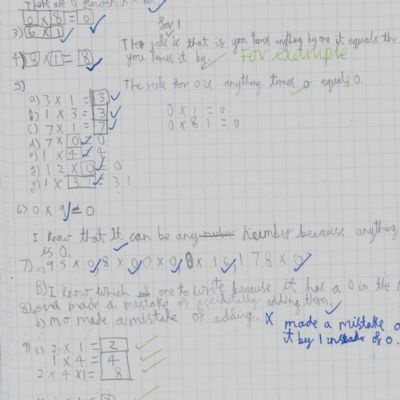 There are 0 flowers in
0 x 8 = 0
For 1
3) 6 x 1
The rule is that is you times anything by one it equals the
4) 8 x 1 = 8
you times it by. For example
5)
The rule for 0 is anything times 0 equals 0.
a) 3 x 1 = 3
0 x 1 = 0
b) 1 x 3 = 3
0 x 81 = 0
c) 7 x 1 = 7
d) 7 x 0 = 0
e) 1 x 4 = 4
12 x 0 = 0
g) 1 x 31 = 31
6) 0 x 9 = 0
I know that It can be any number because anything
is 0.
7) 95 x 0 8 x 0 0 x 0 0 x 16 178 x 0
B) I know which one to write because it has a 0 in the
8) made a mistake of accidentally adding them,
b) mo made a mistake of adding. X made a mistake
it by 1 instead of 0.
9) 2 x 1 = 2
1 x 4 = 4
2 x 4 x 1 = 8